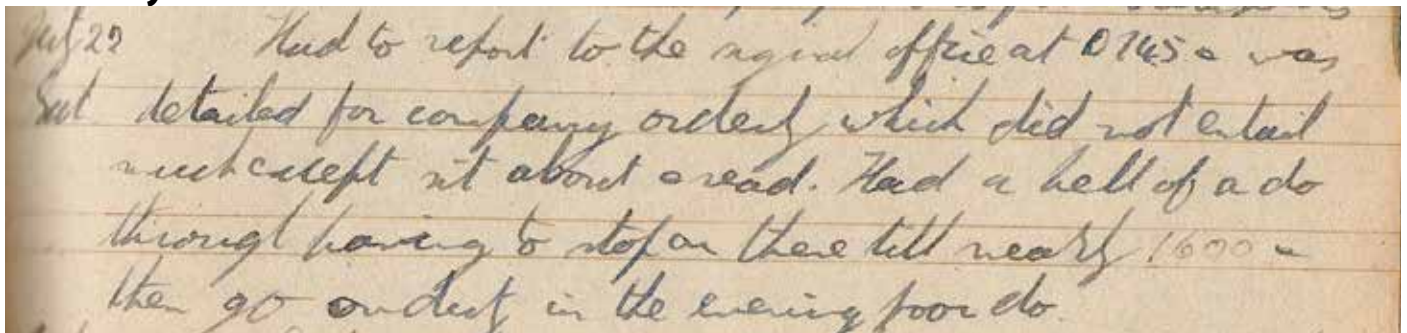 July 29 Had to report to the signal office at 0745 & was
Sat detailed for company orderly, which did not entail
much except sit about & read. Had a hell of a do
through having to stop on there till nearly 1600 &
then go on duty in the evening poor do.